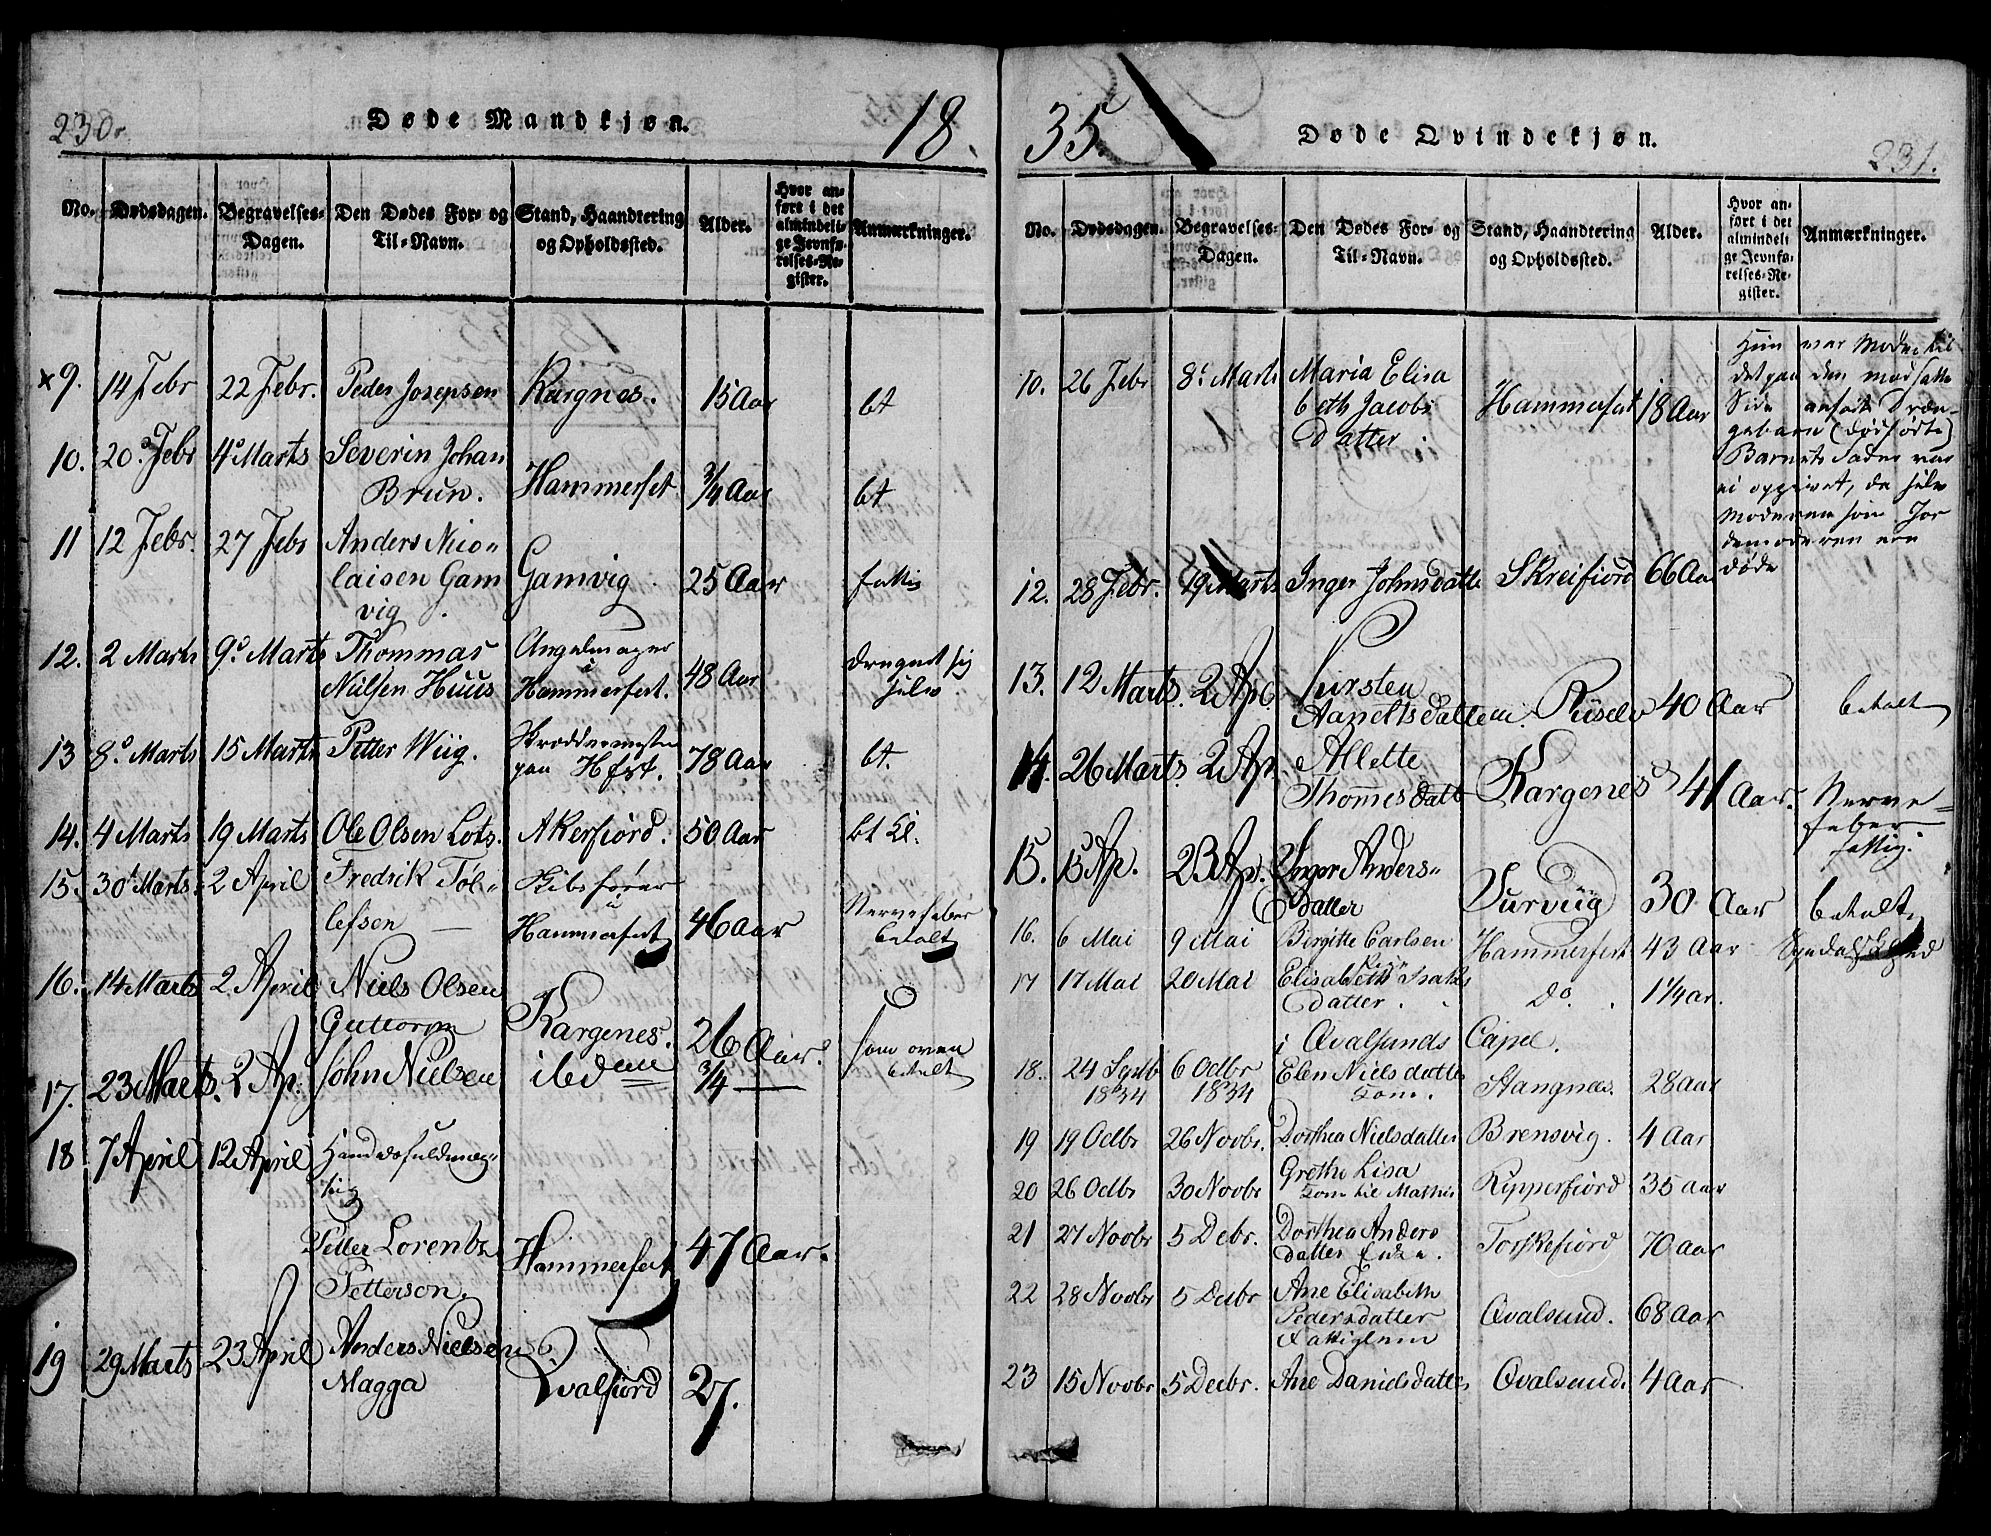 230.
Døde Mandkjøn.
18.
No.
Dødsdagen.
Begravelses-
Dagen.
Den Dødes For- og
Til-Navn.
Stand, Haandtering
og Opholdssted.
Alder.
Hvor an-
ført i det
almindeli-
ge Jevnfø-
relses-Re-
gister.
Anmærkninger.
x 9. 14 Febr 22 Febr. Peder Josepsen Kargnes. 15 Aar bt
10. 20 Febr 4 Marts Severin Johan
Brun. Hammerfet 3/4 Aar bt
11 12 Febr. 27 Febr Anders Nico-
laisen Gam
vig Gamvig 25 Aar fattig
12. 2 Marts 9 Marts Thommas
Nielsen Huus Angelmager
i
Hammerfest. 48 Aar druknet sig
selv
13 8 Marts 15 Marts Petter Wiig. Skreddermester
paa Hfst. 78 Aar bt.
14. 4 Marts 19 Marts Ole Olsen Lots. Akerfiord. 50 Aar bt
15. 30 Marts 2 April Fredrik Tøl-
lefsen Skibsfører
i
Hammerfest 46 Aar Nervefeber
betalt
16. 14 Marts 2 April Niels Olsen
Guttorm Kargenes. 26 Aar. som oven
betalt
17. 23 Marts. 2 Ap. John Nielsen ibidem 3/4
18 7 April 12 April Handelsfuldmæg-
tig
Petter Lorentz
Petterson. Hammerfest 47 Aar.
19 29 Marts 23 April Anders Nielsen
Magga Qvalfiord 27.
35
Døde Qvindekjøn.
231.
No.
Dødsdagen.
Begravelses-
Dagen.
Den Dødes For- og
Til-Navn.
Stand, Haandtering
og Opholdssted.
Alder.
Hvor an-
ført i det
almindeli
ge Jevnfø-
relses-Re-
gister.
Anmærkninger.
10. 26 Febr 8 Marts Maria Elisa
beth Jacobs
datter Hammerfest 18 Aar
Hun var Moder til
det paa den modsatte
Side anførte Dræn-
gebarn (dødfødte)
Barnets Fader var
ei opgivet, da selv
Moderen som Jor
demoderen ere
døde
12. 28 Febr. 19 Marts Inger Johnsdatter Skreifiord 66 Aar
13. 12 Marts. 2 Apl. Kirsten
Aanetsdatter Riselv 40 Aar betalt
14. 26 Marts. 2 Ap. Allette
Thomesdatt Kargenes 41 Aar. Nerve-
feber
fattig.
15. 15 Ap. 23 Ap. Inger Anders-
datter Survüg 30 Aar betalt
16. 6 Mai 9 Mai Birgitte Carlsen Hammerfest 43 Aar
17 17 Mai 20 Mai Elisabeth Isaks
datter. do. 1 1/4 ar.
i Qvalsunds Capel.
18. 24 Septb
1834 6 Octbr
1834 Elen Nielsdatter
Kone. Stangnæs. 28 aar
19 19 Octbr 26 Novbr. Dorthea Nielsdatter Brensvig. 4 Aar
20 26 Octbr 30 Novbr Grethe Lisa
Kone til Mathis Repperfiord 35 aar
21 27 Novbr 5 Decbr. Dorthea Anders
datter Enke. Torskefiord 70 aar
22 28 Novbr 5 Decbr Ane Elisabeth
Pedersdatter
Fattiglem Qvalsund. 68 Aar
23 15 Novbr 5 Decbr. Ane Danielsdatter Qvalsund. 4 Aar